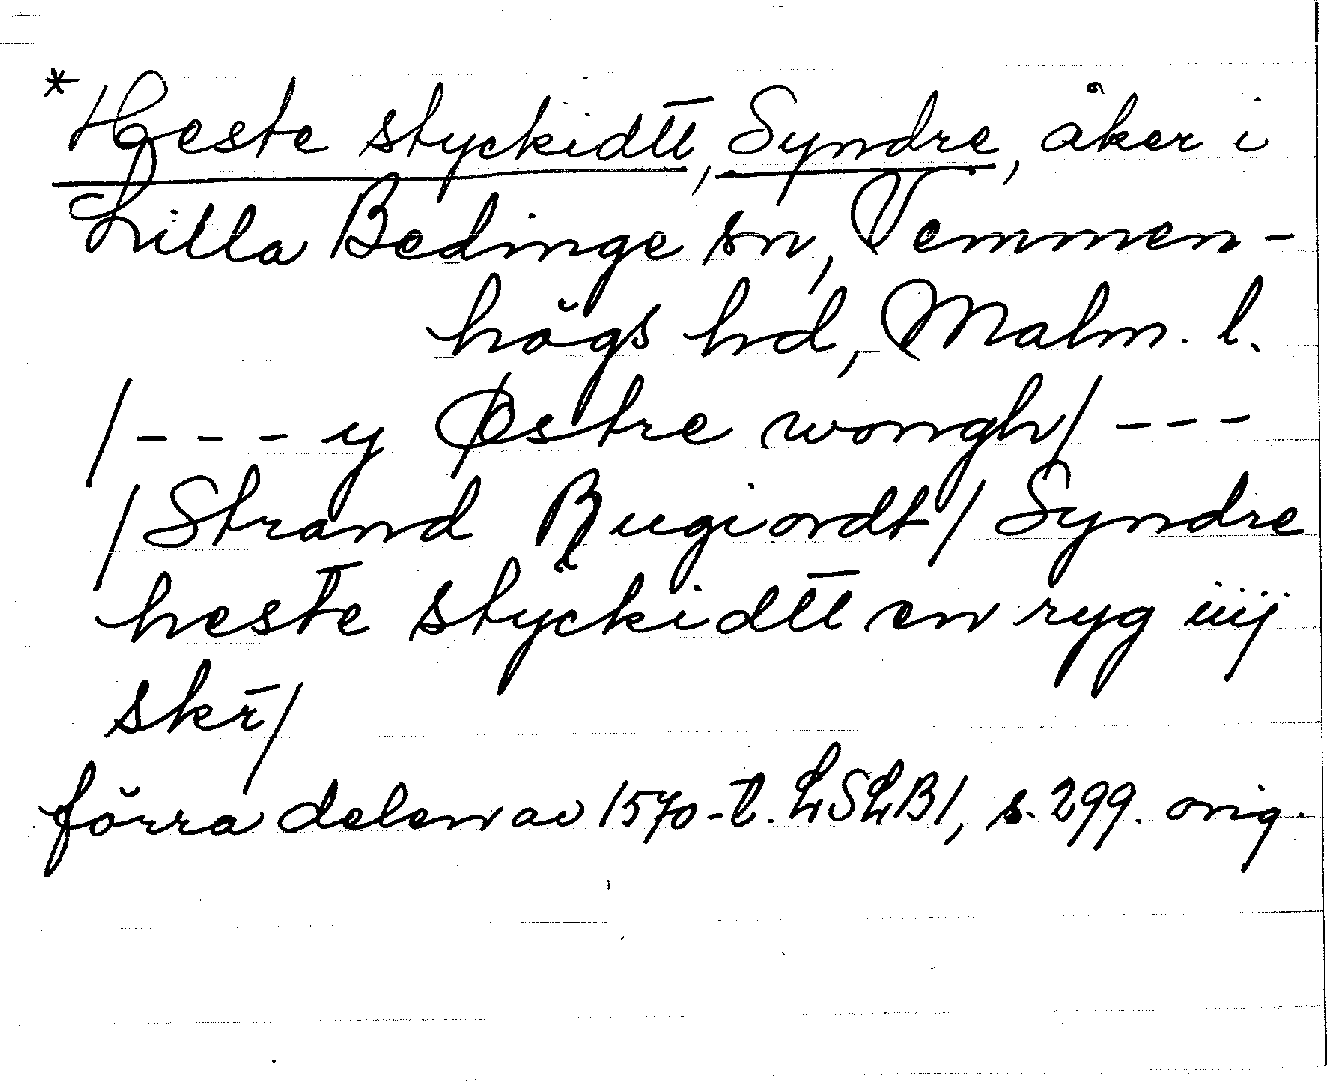 *Heste styckidtt, Syndre, åker i
Lilla Bedinge sn, Vemmen-
högs hd, Malm. l.
/--- y Østre wongh/ ---
/Strand Rugiordt/ Syndre
heste styckidtt en ryg iiij
skr̄/
förra delen av 1570-t. LSLB1, s. 299. orig.